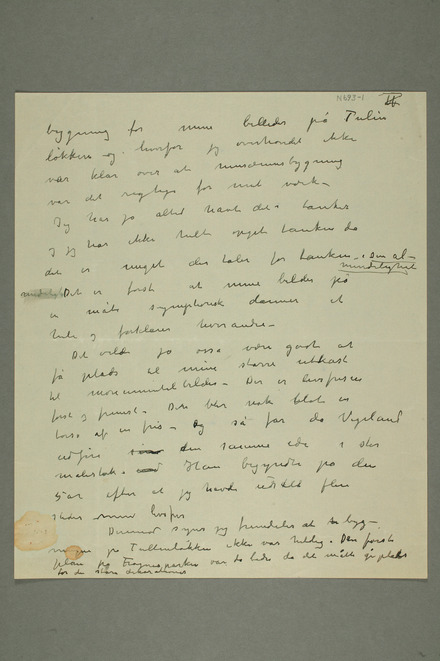 N693-1
IV
bygning for mine billeder på Tullin
løkken og hvorfor jeg overhovedet ikke
var klar over at museumsbygning
var det rigtige for mit værk –
Jeg har jo altid havt den tanken
og jeg har ikke helt opgit tanken da
det er meget der taler for tanken – i sin al-
mindelighet
Det er først at mine billeder på
en måte symphonisk danner et
hele og forklarer hverandre –
Det vilde jo også være godt at
få plads til mine større utkast
til monumentalbilder – Der er livsfrisen
først og fremst – Den blev nok blot en
torso af en fris – Og så får da Vigeland
utføre den samme ide i stor
målestok – Han begynte på den
5 år efter at jeg havde utstillt flere
steder livsfris
Derimod synes jeg fremdeles at byg-
ningen på Tullinløkken ikke var heldig. Den første
plan på Frognerparken var da bedre da det måtte gi plads
for de store dekorationer